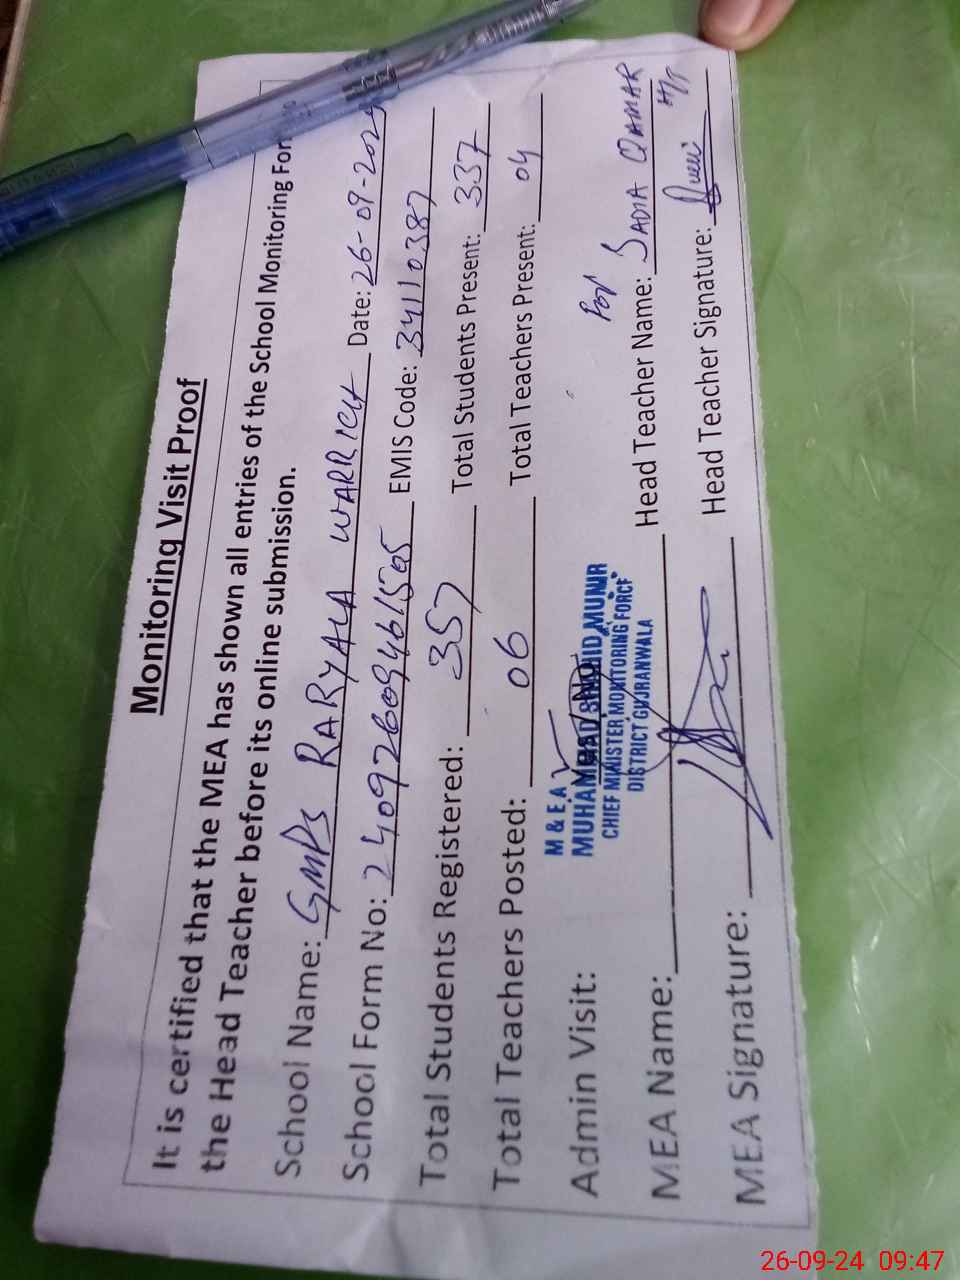 Monitoring Visit Proof
It is certified that the MEA has shown all entries of the School Monitoring For
the Head Teacher before its online submission.
School Name: GMPS RARYALA WARRICH Date: 26-09-2024
School Form No: 24092609461505 EMIS Code: 34110387
Total Students Registered: 357 Total Students Present: 337
Total Teachers Posted: 06 Total Teachers Present: 04
Admin Visit:
M & E A
MUHAMMAD SHAHID MUNIR
CHIEF MINISTER MONITORING FORCE
DISTRICT GUJRANWALA
MEA Name: Head Teacher Name: SADIA QAMAR
MEA Signature: Head Teacher Signature:
26-09-24 09:47